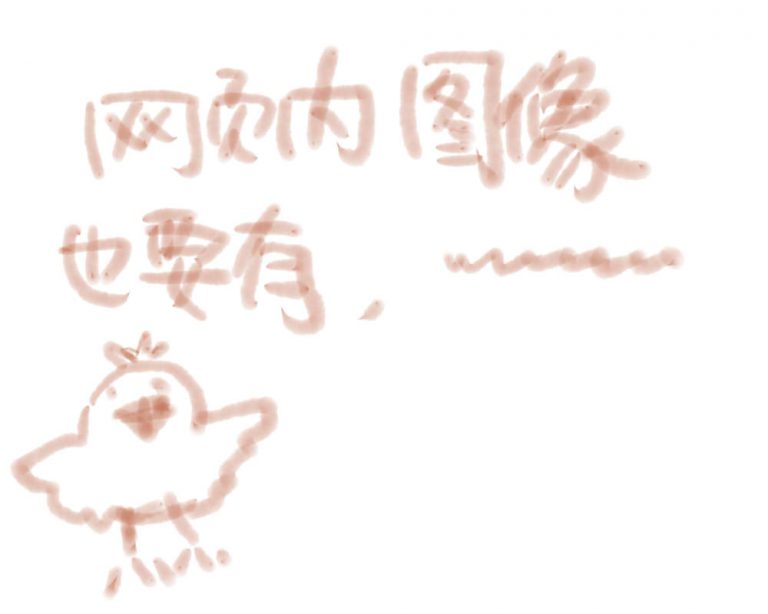 网页内图像
也要有，